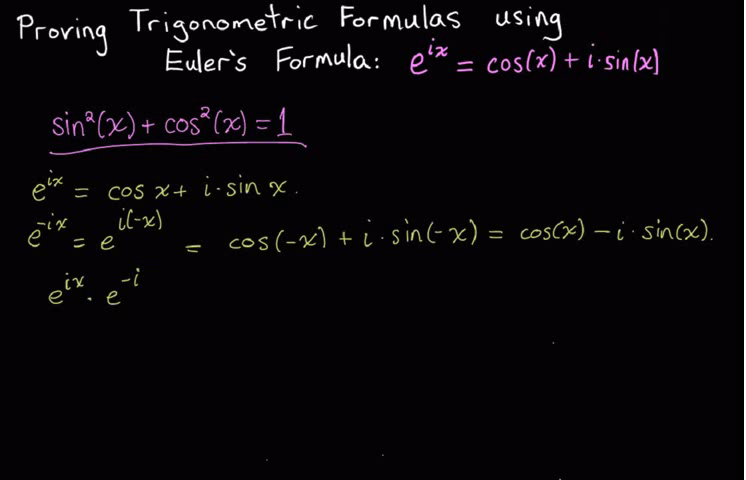 Proving Trigonometric Formulas using
Euler's Formula: e^{ix} = cos(x) + i·sin(x)
sin²(x) + cos²(x) = 1
e^{ix} = cos x + i·sin x.
e^{-ix} = e^{i(-x)} = cos(-x) + i·sin(-x) = cos(x) - i·sin(x).
e^{ix} · e^{-i}